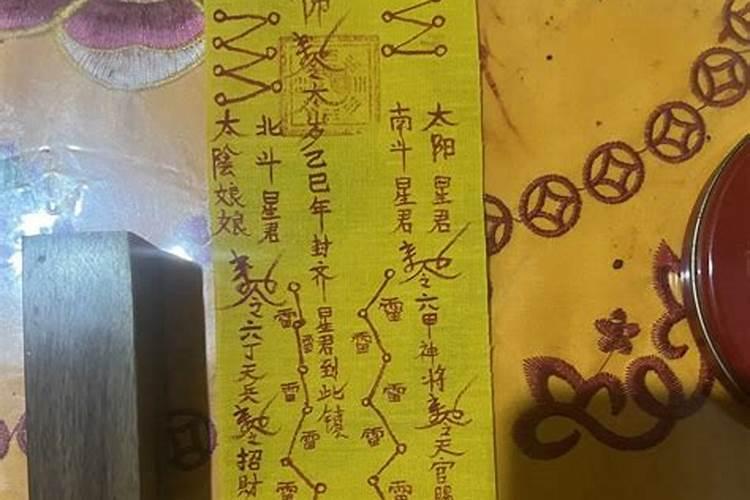 太陽星君
南斗星君
敕令六甲神将敕令天官賜
雷
雷
雷
雷
雷
師敕令太岁己巳年封齐星君到此鎮
北斗星君
太陰娘娘
敕令六丁天兵敕令招財
雷
雷
雷
雷
雷